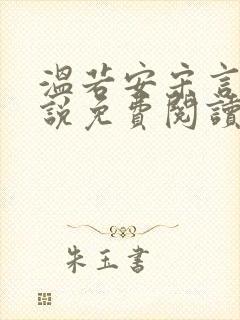 溫若安宋言
說免費閱讀
朱玉書